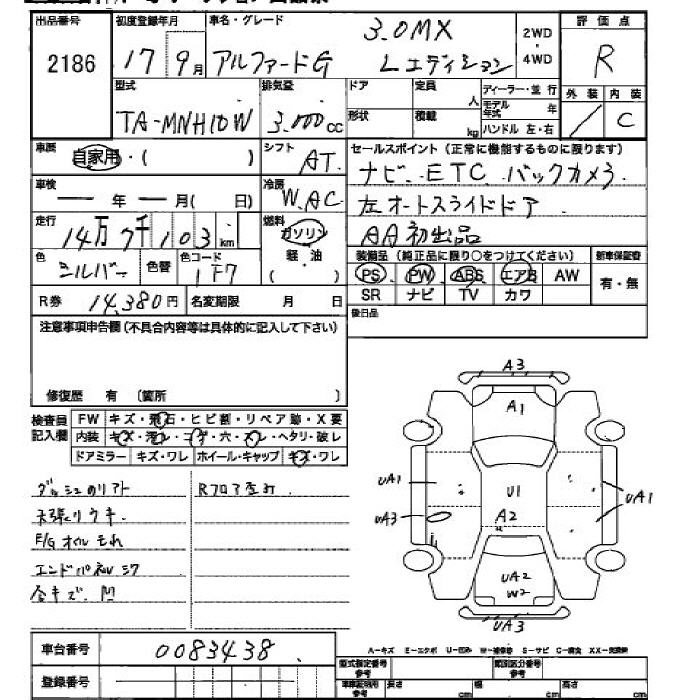 出品番号
2186
初度登録年月
17年9月
車名・グレード
アルファードG
3.0MX
Lエディション
2WD
・
4WD
評価点
R
外装
内装
C
型式
TA-MNH10W
排気量
3,000cc
ドア
形状
定員
人
積載
kg
ディーラー・並行
モデル年式
年
ハンドル 左・右
車歴
自家用・( )
シフト
AT
セールスポイント (正常に機能するものに限ります)
ナビ、ETC、バックカメラ
左オートスライドドア
AA初出品
車検
年 月( 日)
冷房
W.AC
走行
14万7千103km
燃料
ガソリン
軽・油
( )
色
シルバー
色替
色コード
1F7
装備品 (純正品に限り○をつけてください)
PS PW ABS エアB AW
SR ナビ TV カワ
新車保証書
有・無
R券
14,380円
名変期限
月 日
後日品
注意事項申告欄 (不具合内容等は具体的に記入して下さい)
修復歴 有 〔箇所 〕
検査員
記入欄
FW キズ・飛石・ヒビ割・リペア跡・X要
内装 キズ・汚レ・コゲ・穴・スレ・ヘタリ・破レ
ドアミラー キズ・ワレ ホイール・キャップ キズ・ワレ
天張リウキ.
F/Gオイルもれ
合キズ.凹
A3
A1
UA1
U1
UA1
UA3
A2
UA2
W2
UA3
A-キズ E-エクボ U-凹み W-補修跡 S-サビ C-腐食 XX-交換跡
車台番号
0083438
登録番号
型式指定番号
参考
類別区分番号
参考
車庫証明用
参考
長さ
cm
幅
cm
高さ
cm